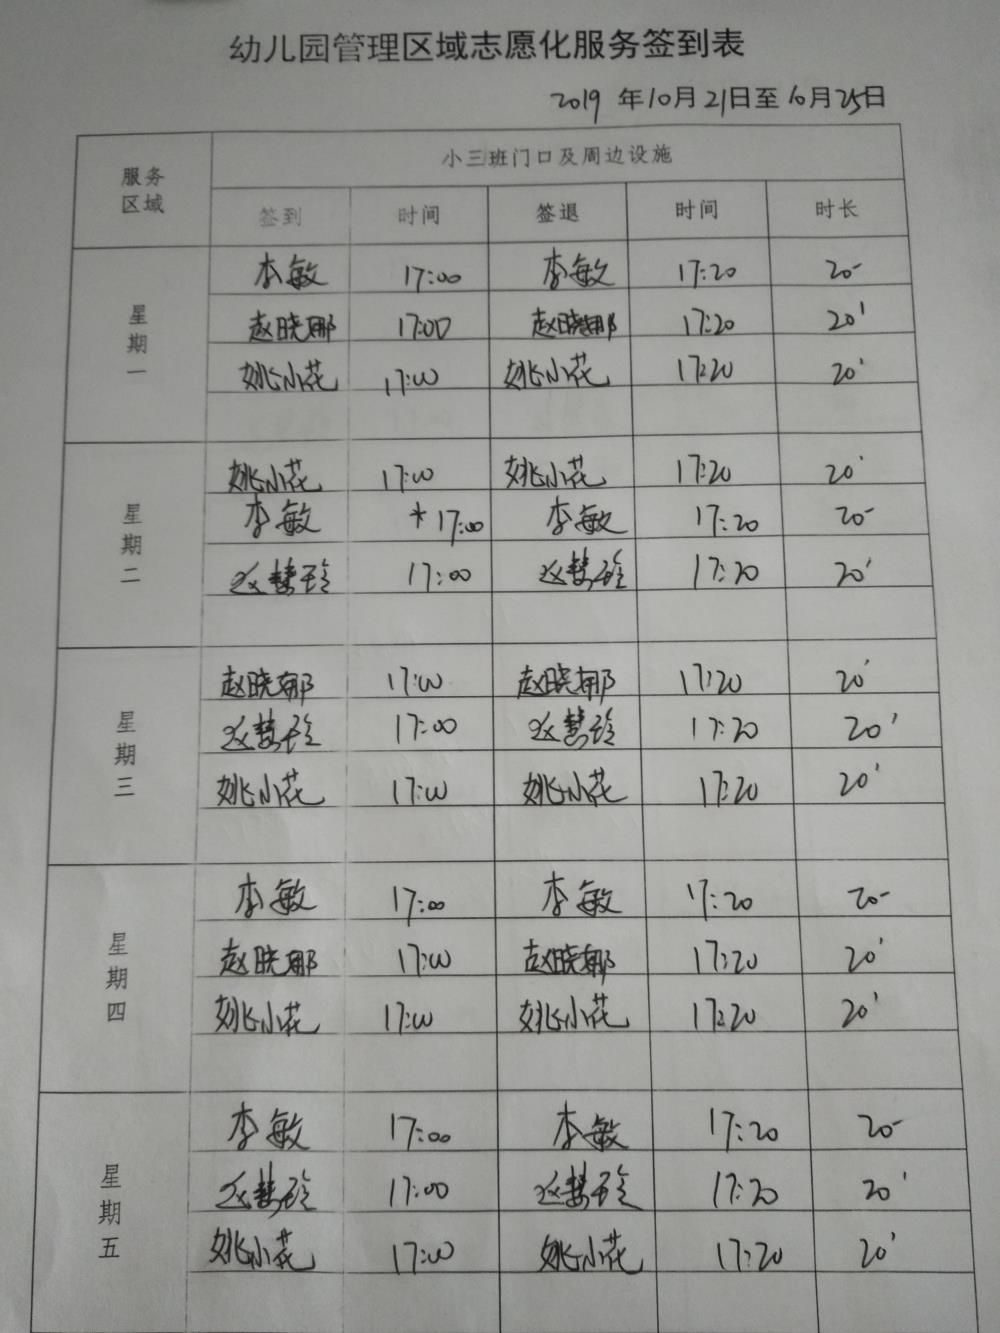 幼儿园管理区域志愿化服务签到表
2019 年10月21日至10月25日
服务区域 小三班门口及周边设施
签到 时间 签退 时间 时长
星期一
李敏 17:00 李敏 17:20 20'
赵晓娜 17:00 赵晓娜 17:20 20'
姚小花 17:00 姚小花 17:20 20'
星期二
姚小花 17:00 姚小花 17:20 20'
李敏 17:00 李敏 17:20 20'
赵慧玲 17:00 赵慧玲 17:20 20'
星期三
赵晓娜 17:00 赵晓娜 17:20 20'
赵慧玲 17:00 赵慧玲 17:20 20'
姚小花 17:00 姚小花 17:20 20'
星期四
李敏 17:00 李敏 17:20 20'
赵晓娜 17:00 赵晓娜 17:20 20'
姚小花 17:00 姚小花 17:20 20'
星期五
李敏 17:00 李敏 17:20 20'
赵慧玲 17:00 赵慧玲 17:20 20'
姚小花 17:00 姚小花 17:20 20'